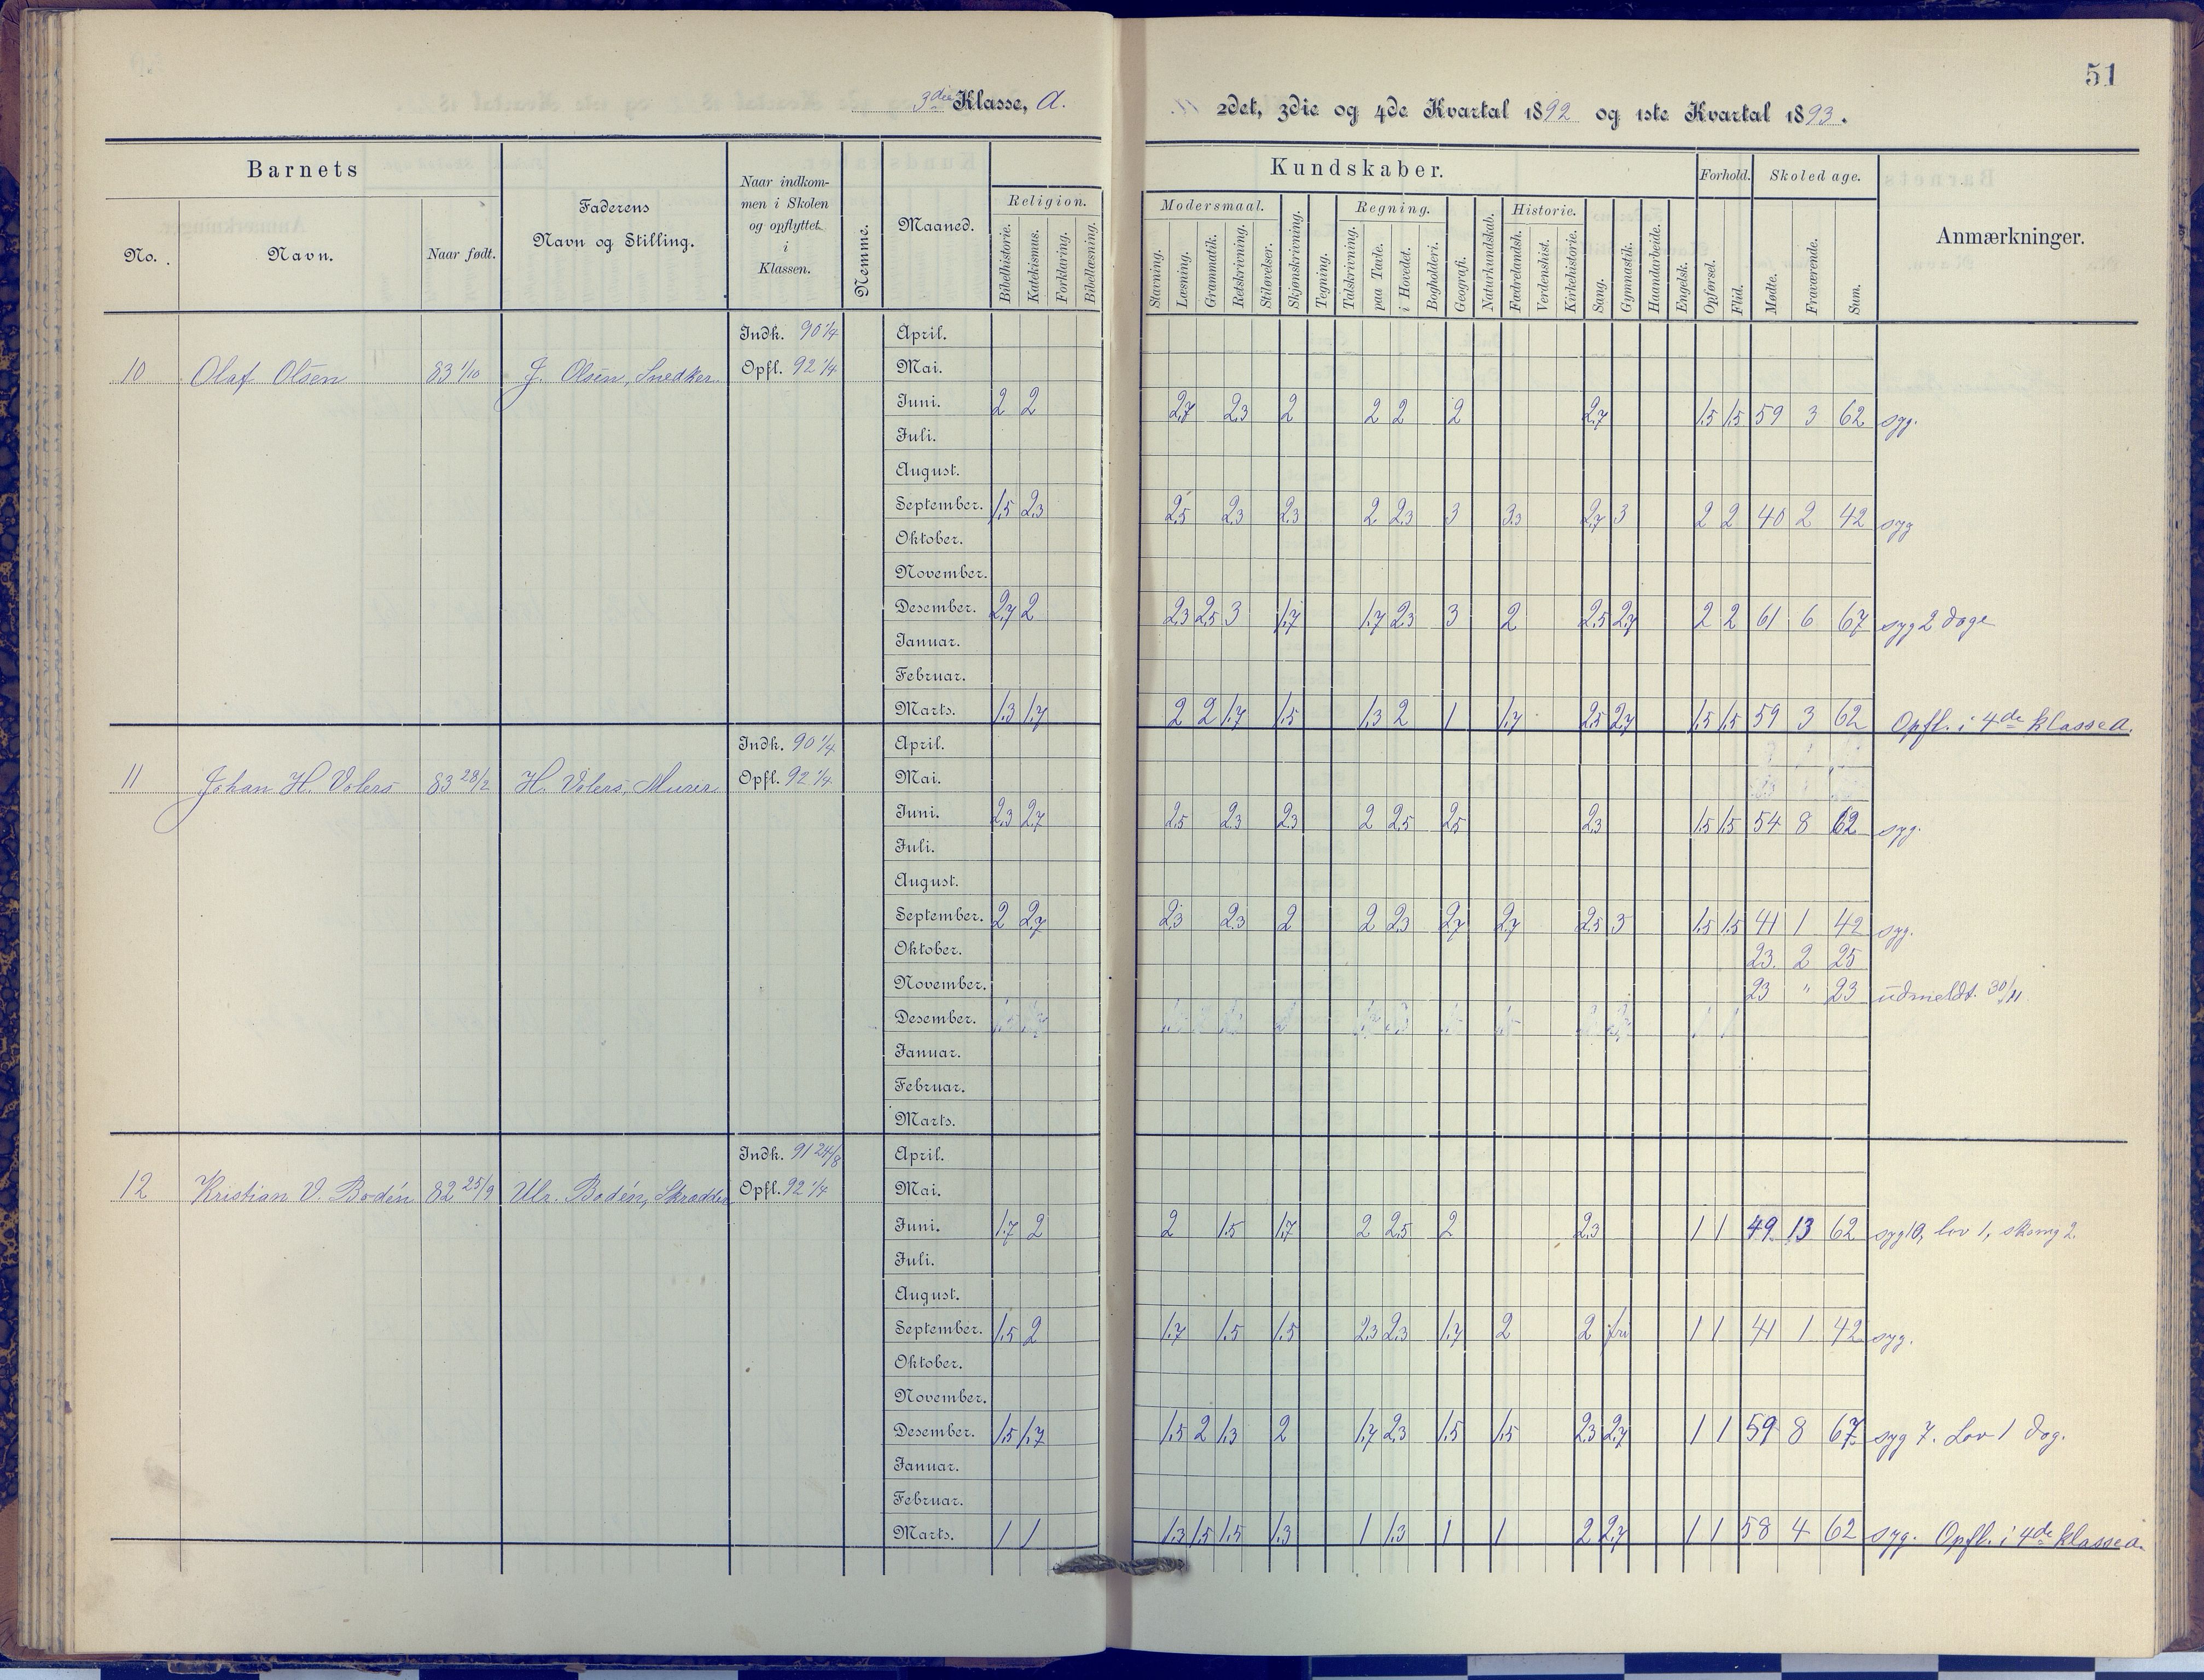 51
3die Klasse, A.
2det, 3die og 4de Kvartal 1892 og 1ste Kvartal 1893.
Barnets
No.
Navn.
Naar født.
Faderens
Navn og Stilling.
Naar indkom-
men i Skolen
og opflyttet
i
Klassen.
Nemme.
Maaned.
Religion.
Bibelhistorie.
Katekismus.
Forklaring.
Bibellæsning.
Kundskaber.
Modersmaal.
Stavning.
Læsning.
Grammatik.
Retskrivning.
Stiløvelser.
Skjønskrivning.
Tegning.
Regning.
Talskrivning.
paa Tavle.
i Hovedet.
Bogholderi.
Geografi.
Naturkundskab.
Historie.
Fædrelandsh.
Verdenshist.
Kirkehistorie.
Sang.
Gymnastik.
Haandarbeide.
Engelsk.
Forhold.
Opførsel.
Flid.
Skoledage.
Mødte.
Fraværende.
Sum.
Anmærkninger.
Indk. 90 1/4 April.
10 Olaf Olsen 83 1/10 J. Olsen, Snedker. Opfl. 92 1/4 Mai.
Juni. 2 2 2,7 2,3 2 2 2 2 2,7 1,5 1,5 59 3 62 syg.
Juli.
August.
September. 1,5 2,3 2,5 2,3 2,3 2 2,3 3 3,3 2,7 3 2 2 40 2 42 syg
Oktober.
November.
Desember. 2,7 2 2,3 2,5 3 1,7 1,7 2,3 3 2 2,5 2,7 2 2 61 6 67 syg 2 dage
Januar.
Februar.
Marts. 1,3 1,7 2 2 1,7 1,5 1,3 2 1 1,7 2,5 2,7 1,5 1,5 59 3 62 Opfl. i 4de klasse A.
Indk. 90 1/4 April.
11 Johan H. Volers 83 28/2 H. Volers, Murer Opfl. 92 1/4 Mai.
Juni. 2,3 2,7 2,5 2,3 2,3 2 2,5 2,5 2,3 1,5 1,5 54 8 62 syg.
Juli.
August.
September. 2 2,7 2,3 2,3 2 2 2,3 2,7 2,7 2,5 3 1,5 1,5 41 1 42 syg.
Oktober. 23 2 25
November. 23 " 23 udmeldt. 30/11
Desember.
Januar.
Februar.
Marts.
Indk. 91 24/8 April.
12 Kristian V. Bodén 82 25/9 Ulr. Bodén, Skrædder Opfl. 92 1/4 Mai.
Juni. 1,7 2 2 1,5 1,7 2 2,5 2 2,3 1 1 49 13 62 syg 10, lov 1, 2.
Juli.
August.
September. 1,5 2 1,7 1,5 1,5 2,3 2,3 1,7 2 2 fri 1 1 41 1 42 syg.
Oktober.
November.
Desember. 1,5 1,7 1,5 2 1,3 2 1,7 2,3 1,5 1,5 2,3 2,7 1 1 59 8 67 syg 7. Lov 1 dag.
Januar.
Februar.
Marts. 1 1 1,3 1,5 1,5 1,3 1 1,3 1 1 2 2,7 1 1 58 4 62 syg. Opfl. i 4de klasse A.